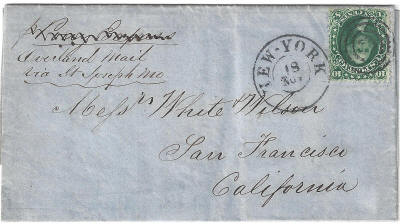 p Pony Express
Overland Mail
via St Joseph Mo
NEW-YORK
18
NOV
Messrs White & Wilson
San Francisco
California